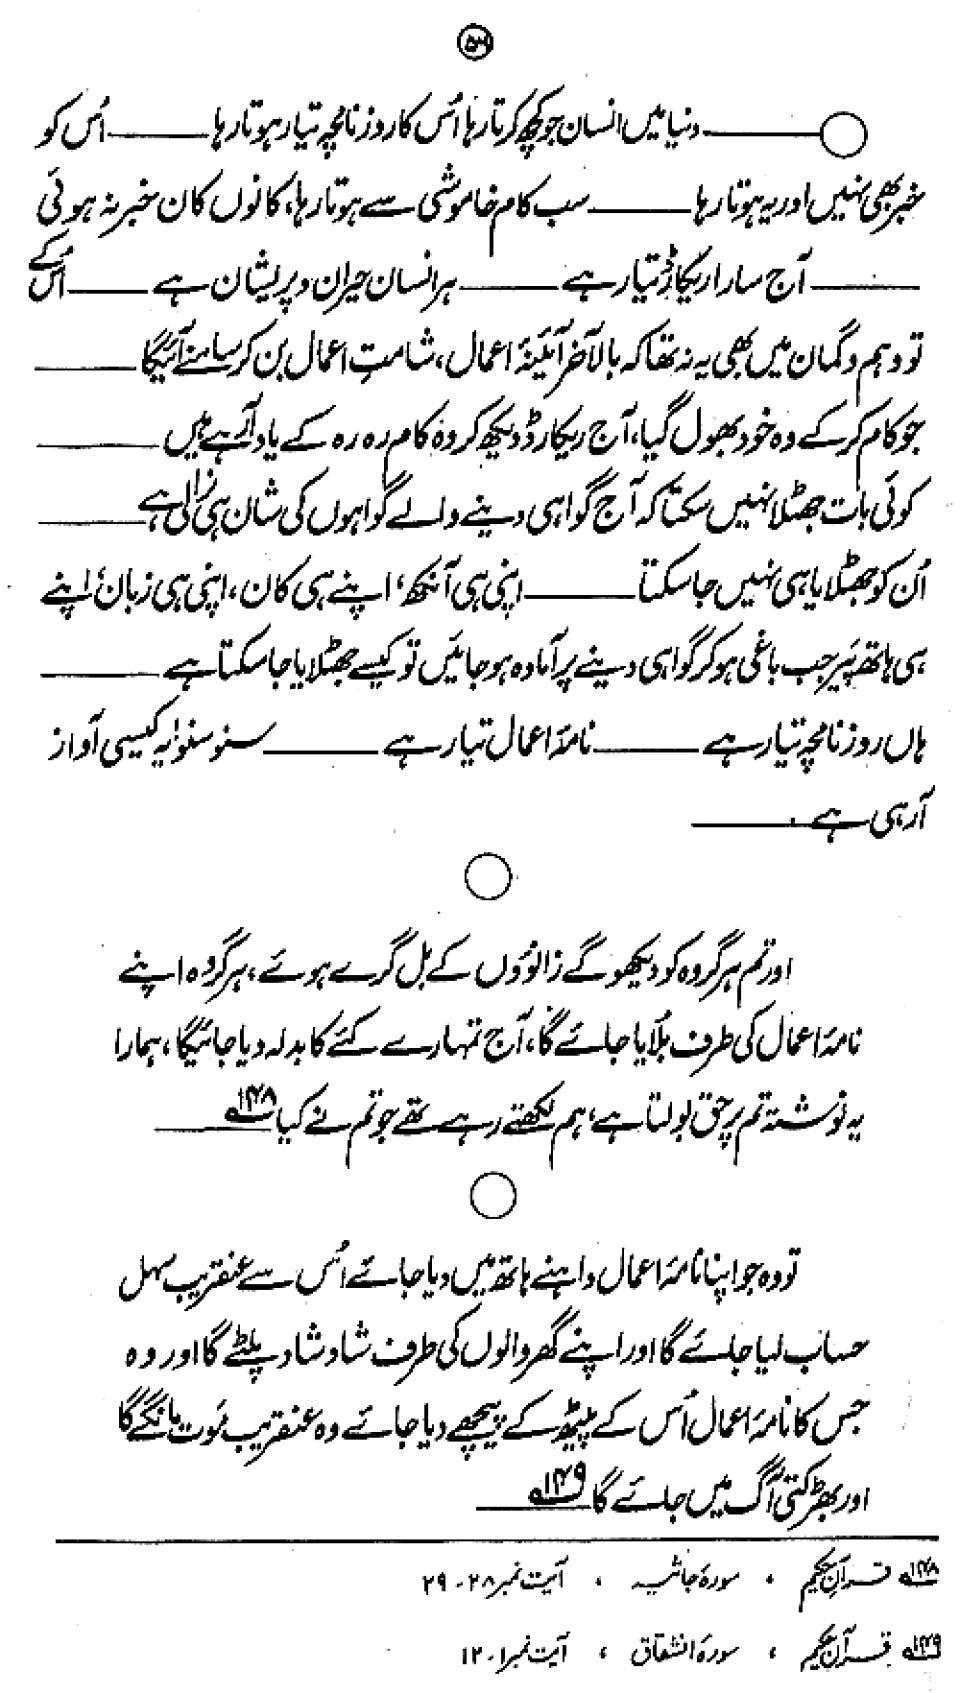 ۵۳
دنیا میں انسان جو کچھ کرتا رہا اُس کا روزنامچہ تیار ہوتا رہا ——— اُس کو
خبر بھی نہیں اور یہ ہوتا رہا ——— سب کام خاموشی سے ہوتا رہا، کانوں کان خبر نہ ہوئی
——— آج سارا ریکارڈ تیار ہے ——— ہر انسان حیران و پریشان ہے ——— اُس کے
تو وہم و گمان میں بھی یہ نہ تھا کہ بالآخر آئینۂ اعمال، شامتِ اعمال بن کر سامنے آئیگا ———
جو کام کر کے وہ خود بھول گیا، آج ریکارڈ دیکھ کر وہ کام رہ رہ کے یاد آرہے ہیں ———
کوئی بات جھٹلا نہیں سکتا کہ آج گواہی دینے والے گواہوں کی شان ہی نرالی ہے ———
اُن کو جھٹلایا ہی نہیں جا سکتا ——— اپنی ہی آنکھ، اپنے ہی کان، اپنی ہی زبان، اپنے
ہی ہاتھ پَیر جب باغی ہو کر گواہی دینے پر آمادہ ہو جائیں تو کیسے جھٹلایا جا سکتا ہے ———
ہاں روزنامچہ تیار ہے ——— نامۂ اعمال تیار ہے ——— سنو سنو! یہ کیسی آواز
آرہی ہے ———
اور تم ہر گروہ کو دیکھو گے زانوؤں کے بل گرے ہوئے، ہر گروہ اپنے
نامۂ اعمال کی طرف بلایا جائے گا، آج تمہارے کئے کا بدلہ دیا جائیگا، ہمارا
یہ نوشتہ تم پر حق بولتا ہے، ہم لکھتے رہے تھے جو تم نے کیا ۱۴۸؎ ———
تو وہ جو اپنا نامۂ اعمال داہنے ہاتھ میں دیا جائے اُس سے عنقریب سہل
حساب لیا جائے گا اور اپنے گھر والوں کی طرف شاد شاد پلٹے گا اور وہ
جس کا نامۂ اعمال اُس کے پیٹھ کے پیچھے دیا جائے وہ عنقریب مَوت مانگے گا
اور بھڑکتی آگ میں جائے گا ۱۴۹؎ ———
۱۴۸؎ قرآن حکیم ، سورۂ جاثیہ ، آیت نمبر ۲۸-۲۹
۱۴۹؎ قرآن حکیم ، سورۂ انشقاق ، آیت نمبر ۱-۱۲